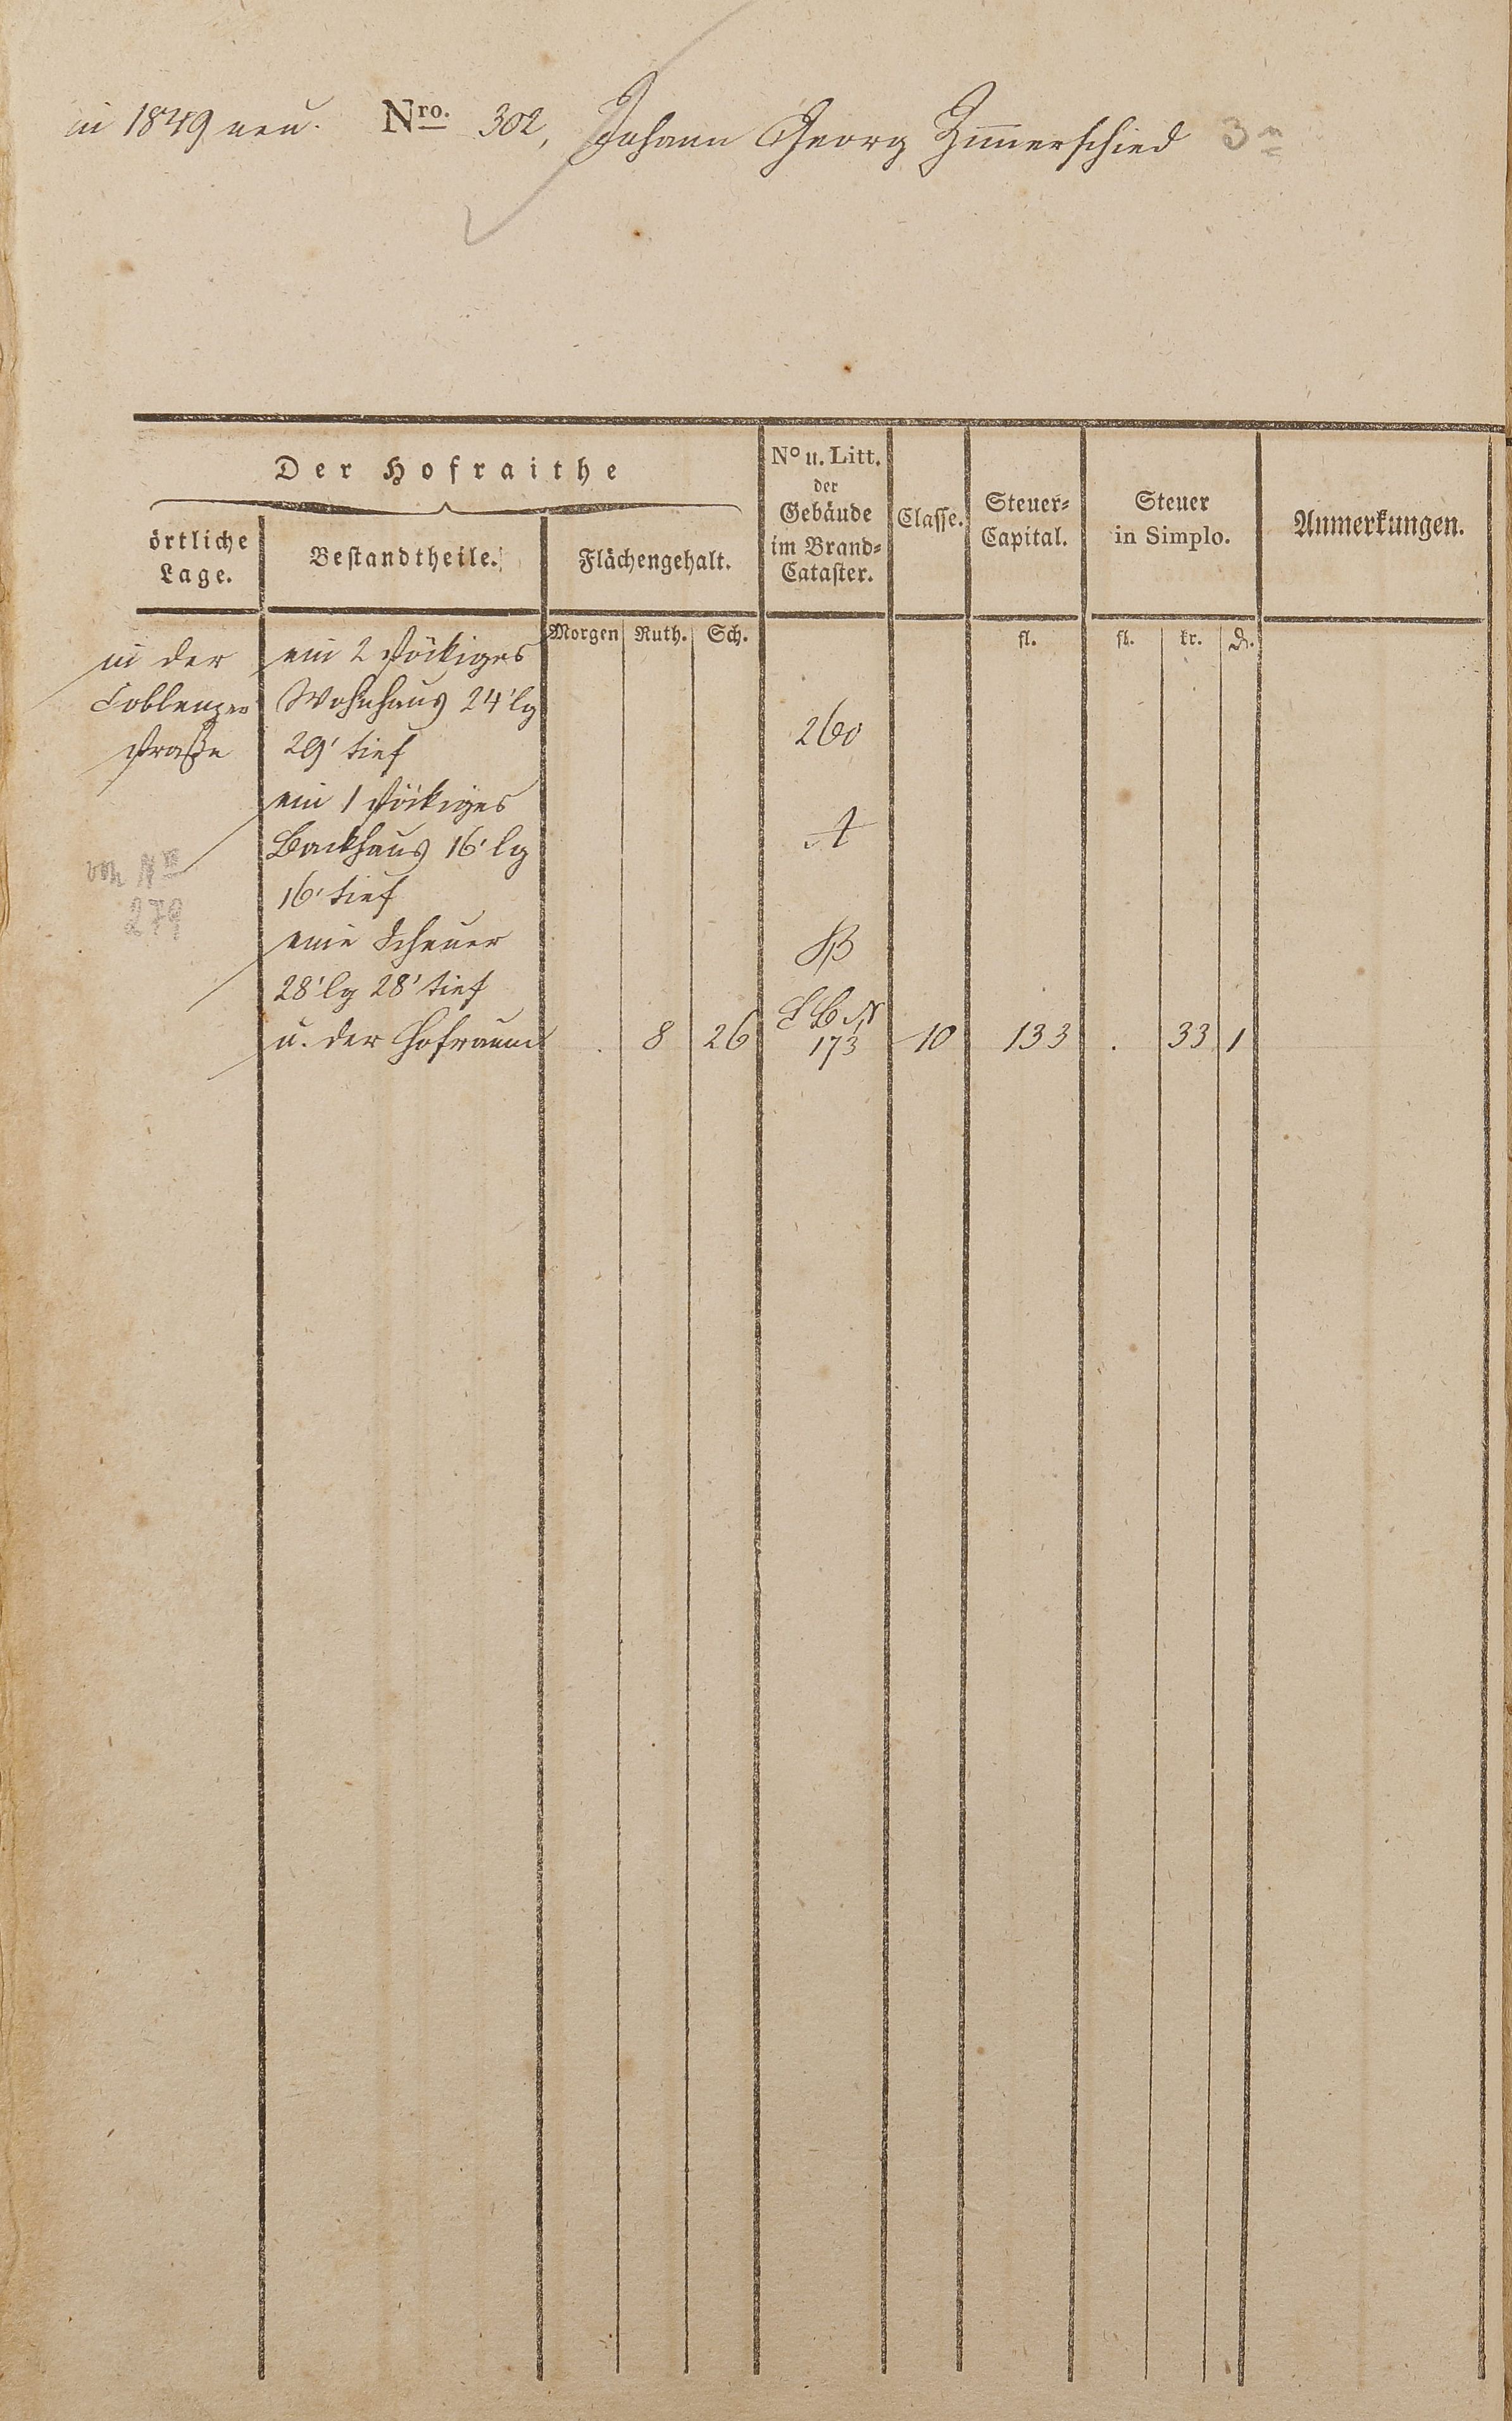 in 1849 neu. Nro. 302, Johann Georg Zimerschied 3r
Der Hofraithe
örtliche Lage.
Bestandtheile.
Flächengehalt.
No u. Litt. der Gebäude im Brand-Cataster.
Classe.
Steuer-Capital.
Steuer in Simplo.
Anmerkungen.
Morgen Ruth. Sch. fl. fl. kr. d.
in der ein 2 stöckiges
Coblenzer Wohnhaus 24' lg
straße 29' tief 260
ein 1 stöckiges
Backhaus 16' lg A
von No 16' tief
279
eine Scheuer B
28' lg 28' tief
u. der Hofraum . 8 26 St B N 173 10 133 . 33 1